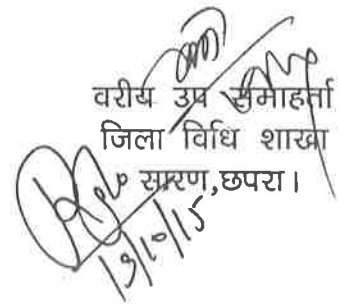 वरीय उप समाहर्ता
जिला विधि शाखा
सारण,छपरा।
13/10/15